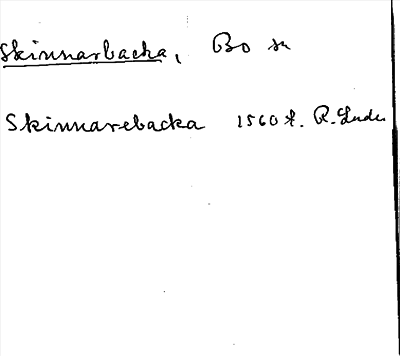 Skinnarbacka, Bo sn
Skinnarebacka 1560 R.